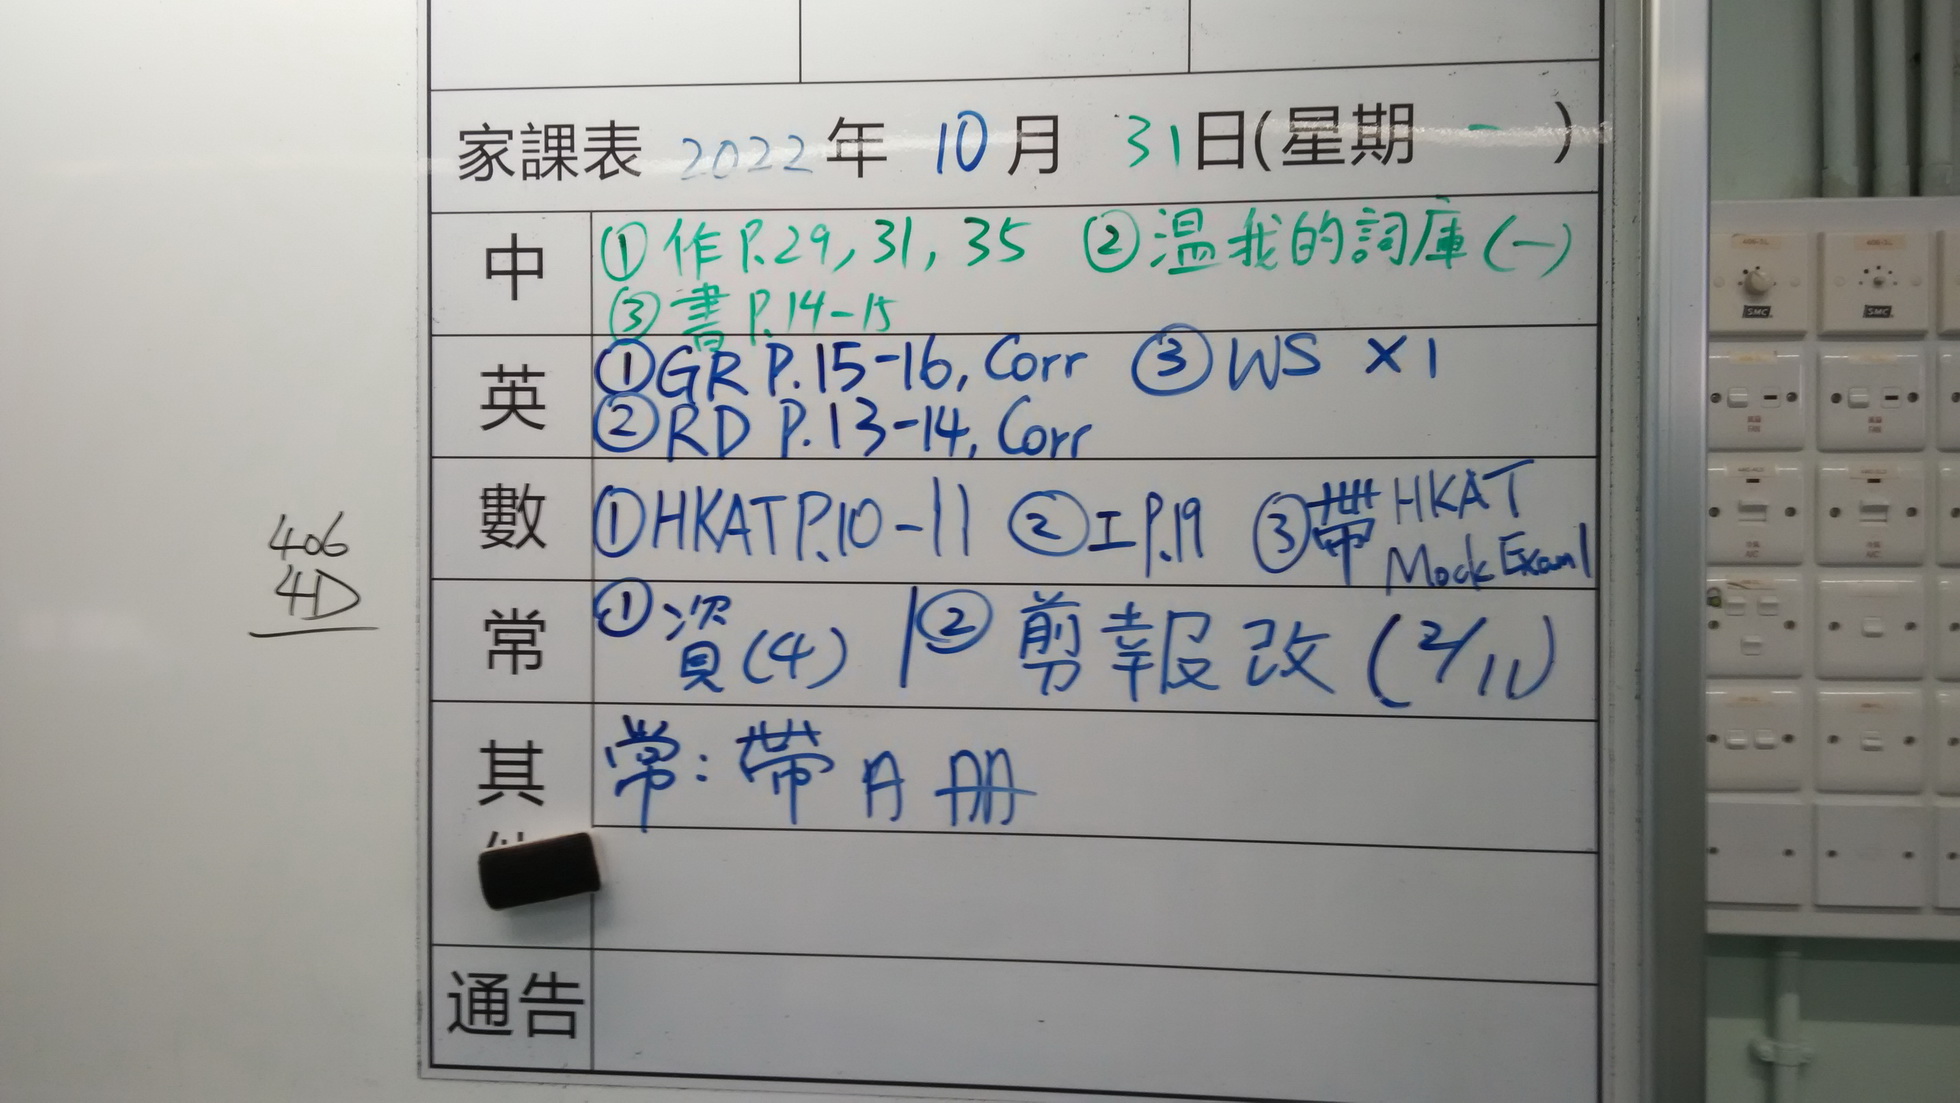 家課表 2022年 10月 31日(星期 一 )
中
①作P.29, 31, 35 ②温我的詞庫(一)
③書P.14-15
英
①GR P.15-16, Corr ③WS ×1
②RD P.13-14, Corr
數
①HKAT P.10-11 ②工P.19 ③帶HKAT
Mock Exam 1
常
①資(4) | ②剪報改(2/11)
其
常:帶A冊
通告
406
4D
SMC
SMC